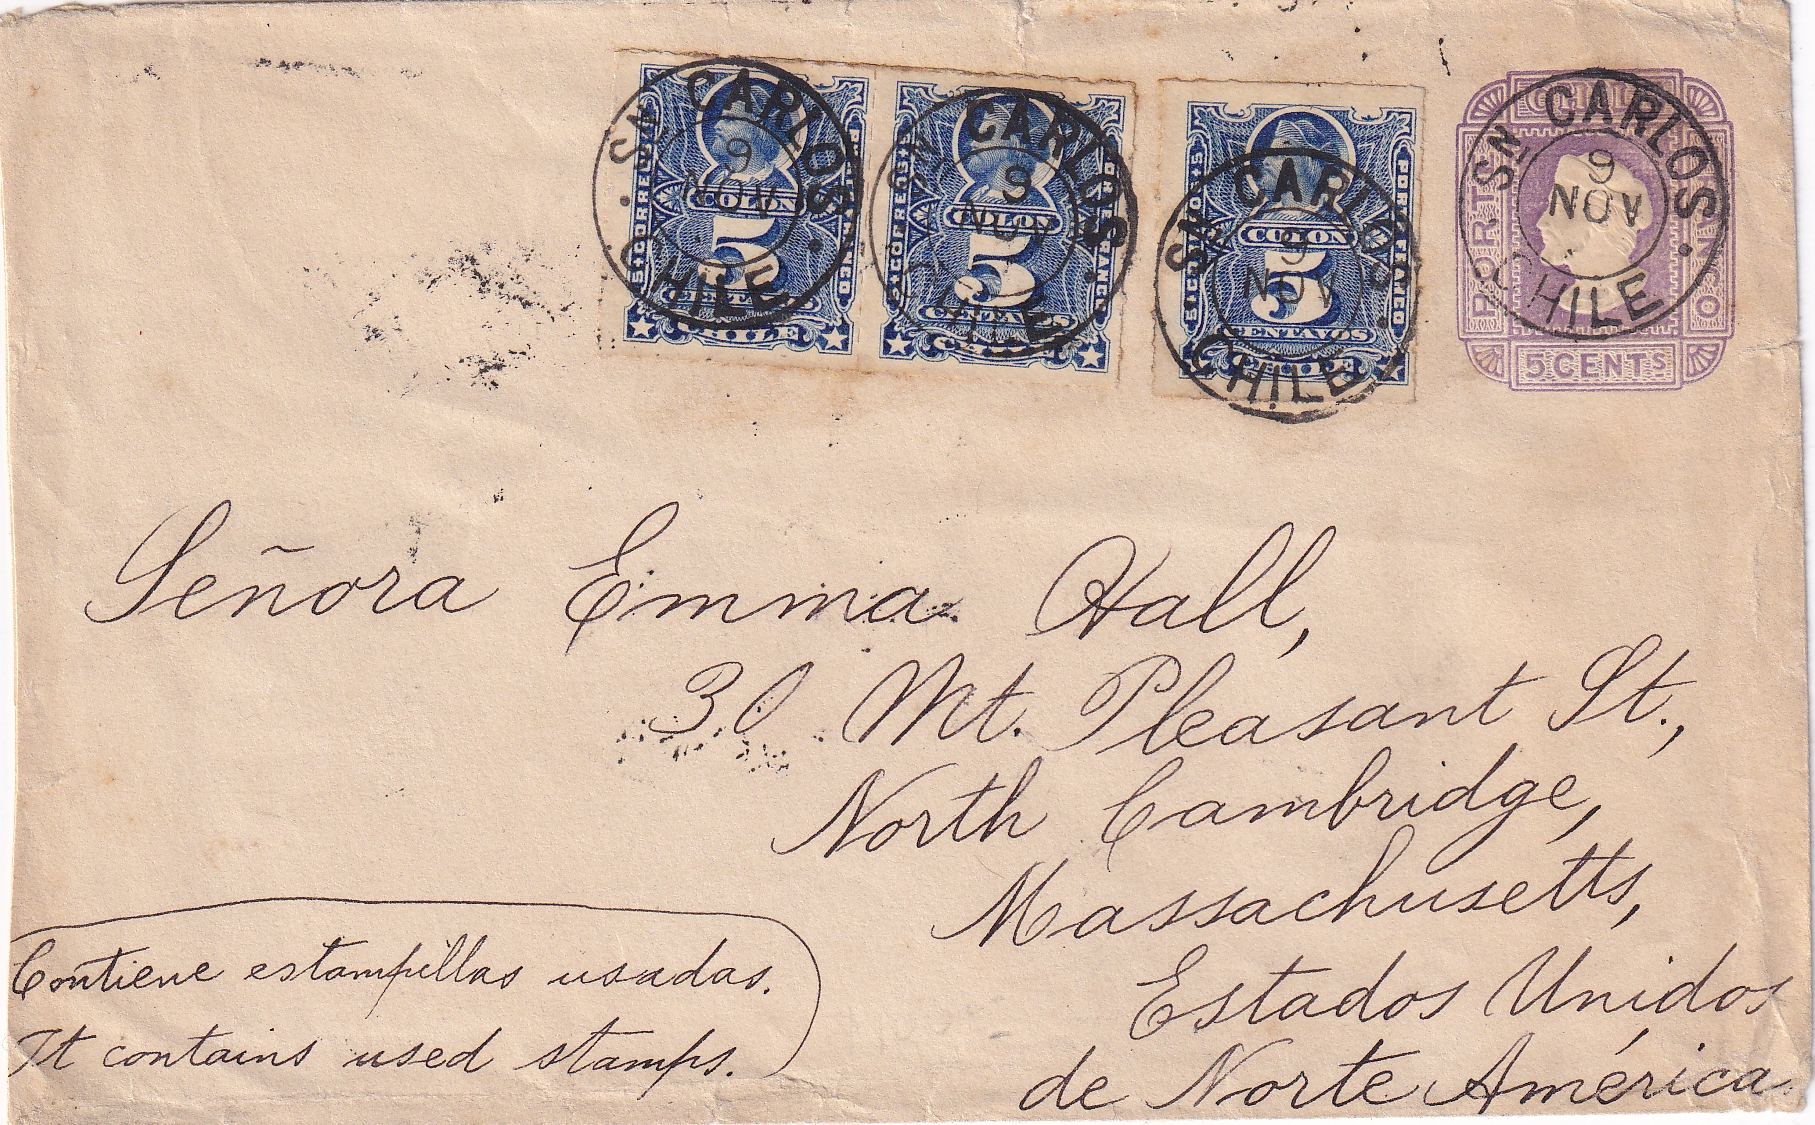 COLON
5
CENTAVOS
CHILE
COLON
5
CENTAVOS
COLON
5
CENTAVOS
PORTE
5 CENTS
SN CARLOS
9
NOV
CHILE
SN CARLOS
9
NOV
CHILE
SN CARLOS
9
NOV
CHILE
SN CARLOS
9
NOV
CHILE
Señora Emma Hall,
30 Mt. Pleasant St.,
North Cambridge,
Massachusetts,
Estados Unidos
de Norte América
Contiene estampillas usadas.
It contains used stamps.